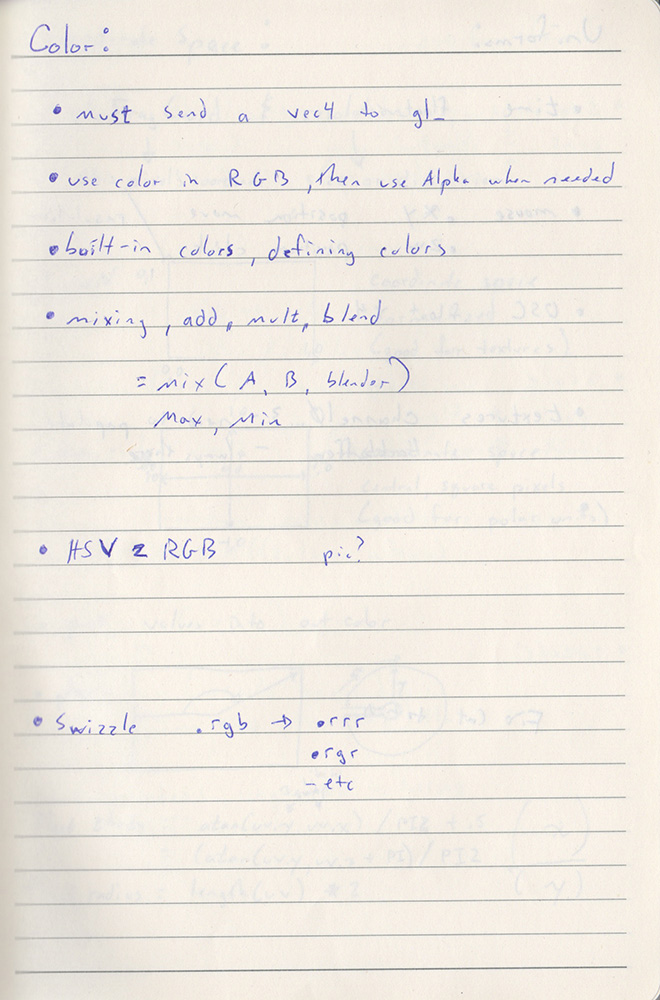 Color:
• must send a vec4 to gl_
• use color in RGB, then use Alpha when needed
• built-in colors, defining colors
• mixing, add, mult, blend
= mix( A, B, blendor)
Max, Min
• HSV 2 RGB pic?
• Swizzle .rgb → .rrr
.rgr
- etc